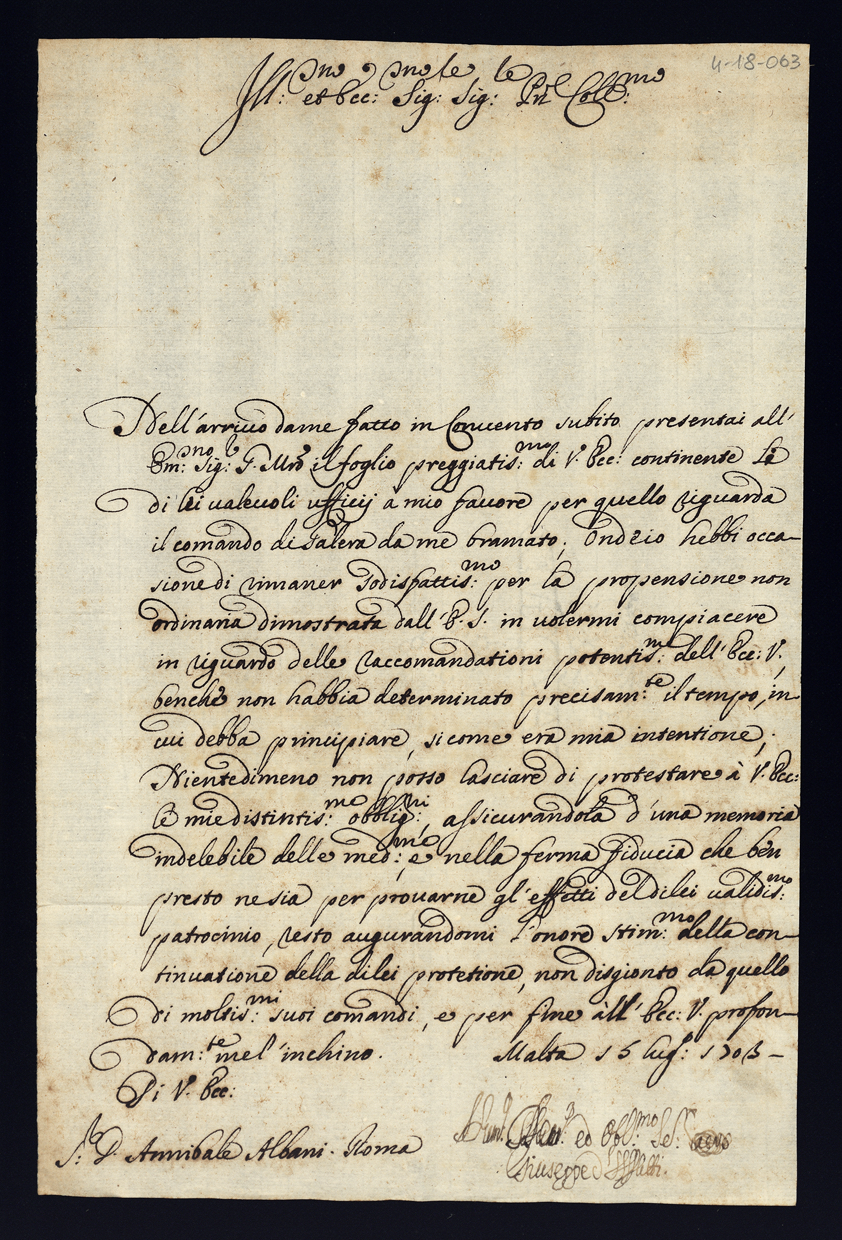 4-18-063
Ill:mo et Ecc:mo Sig:re Sig:re Pn͠l Coll:mo
Dell'arrivo da me fatto in Convento subito presentai all'
Em:mo Sig:r G. Mro il foglio preggiatis:mo di V. Ecc: continente Le
di lei valevoli ufficij à mio favore per quello riguarda
il comando di Galera da me bramato; Ond'io hebbi occa-
sione di rimaner sodisfattis:mo per la propensione non
ordinaria dimostrata dall'E. S. in volermi compiacere
in riguardo delle raccomandationi potentis:me dell'Ecc: V.,
benche non habbia determinato precisam:te il tempo, in
cui debba principiare, si come era mia intentione;
Nientedimeno non posso lasciare di protestare à V. Ecc:
le mie distintis:me obblig:ni, assicurandola d'una memoria
indelebile delle med:me, e nella ferma fiducia che ben
presto ne sia per provarne gl'effetti del di lei validis:mo
patrocinio, resto augurandomi l'onore stim:mo della con-
tinuatione della di lei protetione, non disgionto da quello
di moltis:mi suoi comandi, e per fine all'Ecc: V. profon-
dam:te me l'inchino. Malta 15 lug:o 1703 -
Di V. Ecc:
S:r D. Annibale Albani. Roma
ed Obl:mo Se:r
Giuseppe